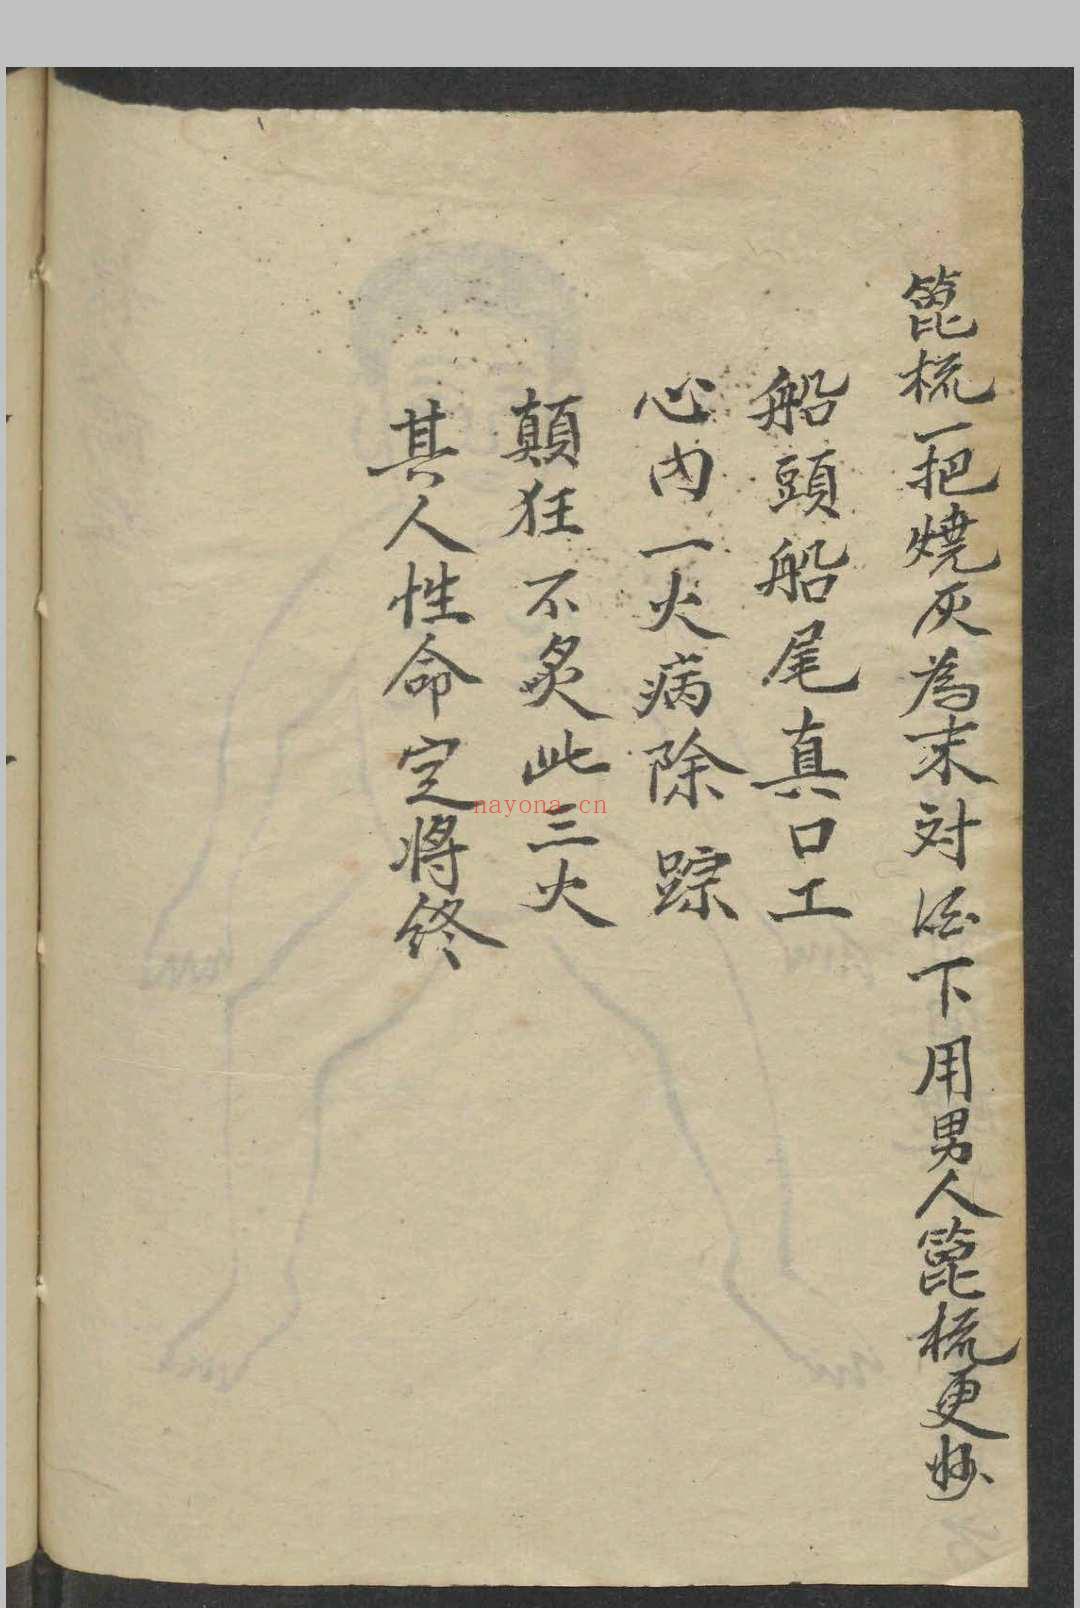 篦梳一把燒灰為末対酒下用男人篦梳更妙
船頭船尾真口工
心內一火病除踪
顛狂不炙此三火
其人性命定将终
nayona.cn